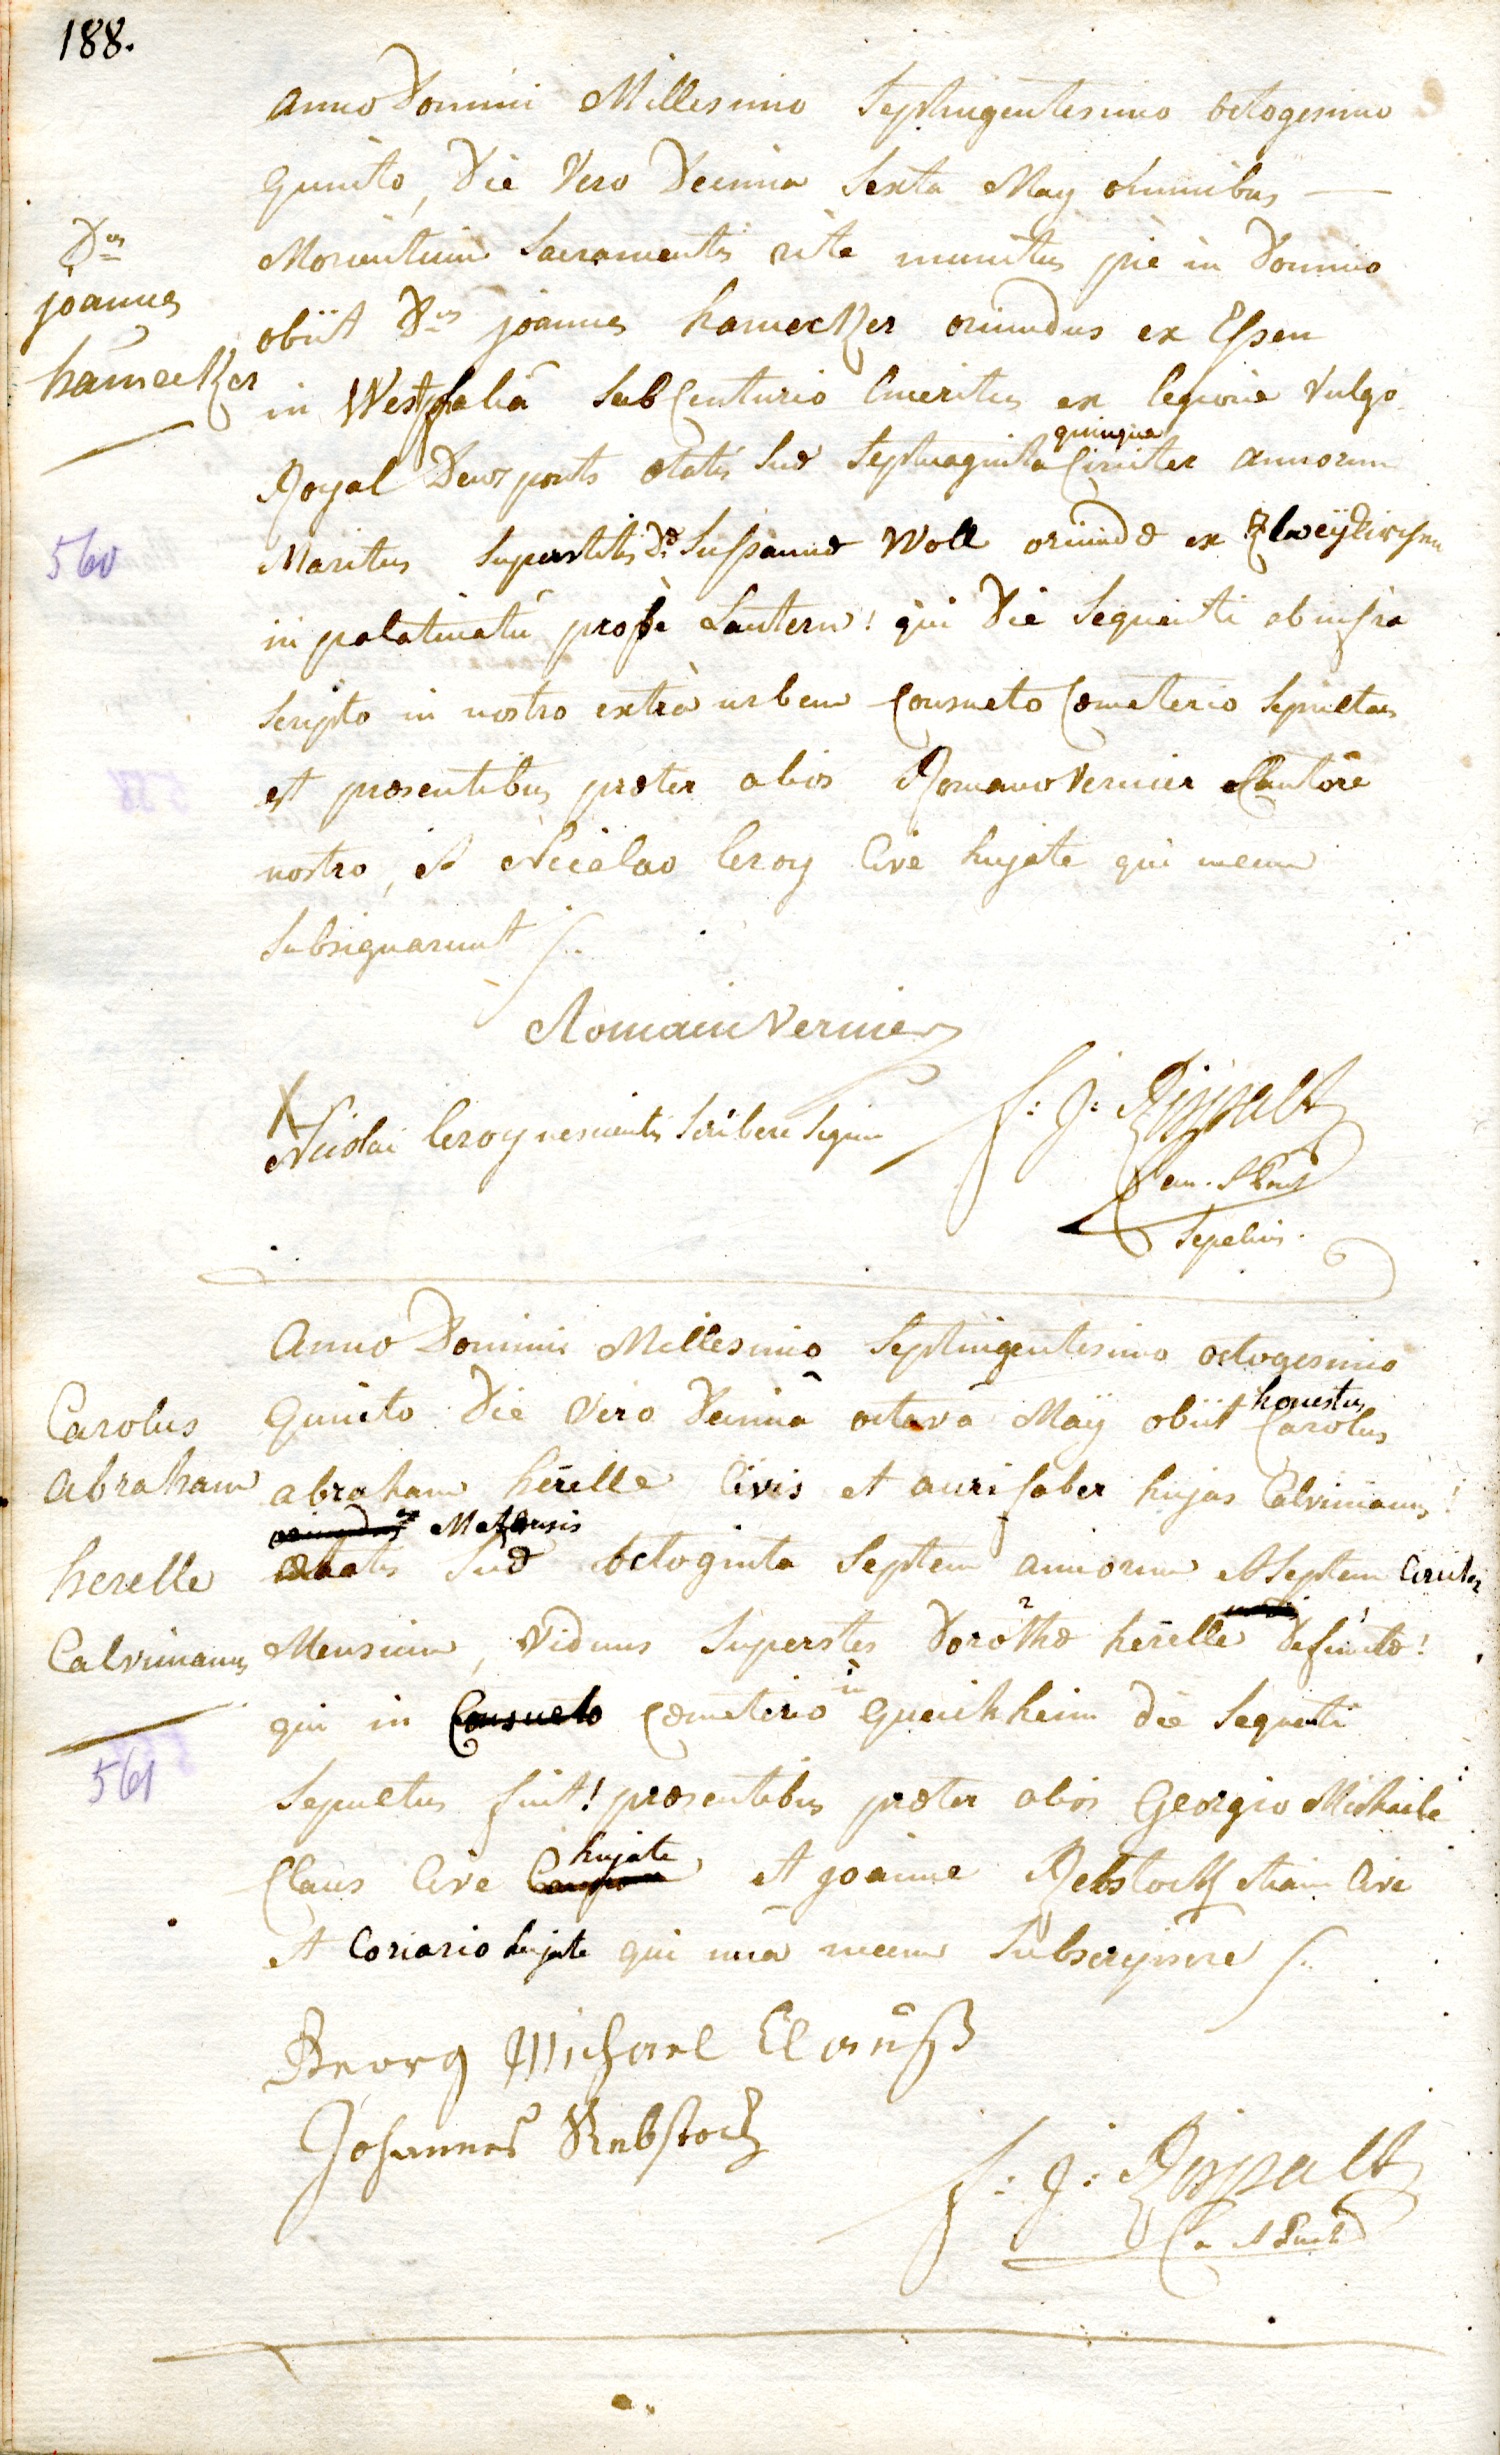 188.
Anno Domini Millesimo Septingentesimo octogesimo
quinto, Die Vero Decima Sexta May omnibus
Morientium Sacramentis rite munitus piè in Domino
Dnus
joannes
hamecker
obiit Dnus joannes hamecker oriundus ex Essen
in Westphaliâ SubCenturio Emeritus ex legione Vulgo
Royal Deuxponts ætatis Suæ Septuaginta quinque Circiter annorum
560
Maritus Superstitis Dæ Susannæ Woll oriundæ ex Zweykirchen
in palatinatu prope Lautern! qui Die Sequenti ab infra
Scripto in nostro extrà urbem Consueto Cœmeterio Sepultus
est præsentibus præter alios Romano Vernier Cantore
nostro, et Nicolao leroy Cive hujate qui mecum
Subsignarunt
Romain Vernier
X
Nicolai leroy nescientis Scribere Signum
f: J: Rippalt
Sepeliens.
Anno Domini Millesimo Septingentesimo octogesimo
Carolus
abraham
herelle
Calvinianus
561
quinto Die Vero Decima octava Maÿ obiit honestus Carolus
abraham herelle Civis et aurifaber hujas Calvinianus!
oriundus Metensis
ætatis Suæ octoginta Septem annorum et Septem Circiter
Mensium, Viduus Superstes Dorothæ herelle Defunctæ!
qui in Consueto Cœmeterio in Queichheim die Sequenti
Sepultus fuit! præsentibus præter alios Georgio Michaele
Claus Cive hujate et joanne Rebstock etiam Cive
et Coriario hujate qui una mecum Subscripsere
Georg Michael Clauß
Johannes Rebstock
f: J: Rippalt